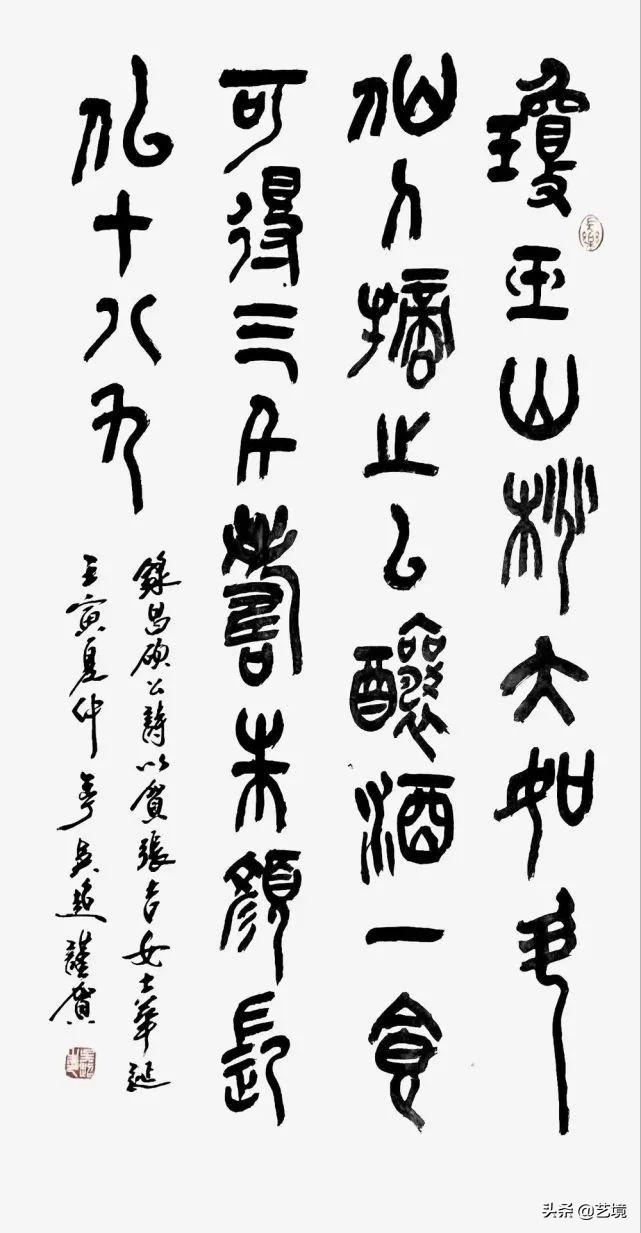 瓊玉山桃大如斗
仙人摘止㠯釀酒一食
可得三千壽朱顏長
似十八九
錄昌碩公詩以賀張吉女士華誕
壬寅夏仲 吳超謹賀
头条 @艺境